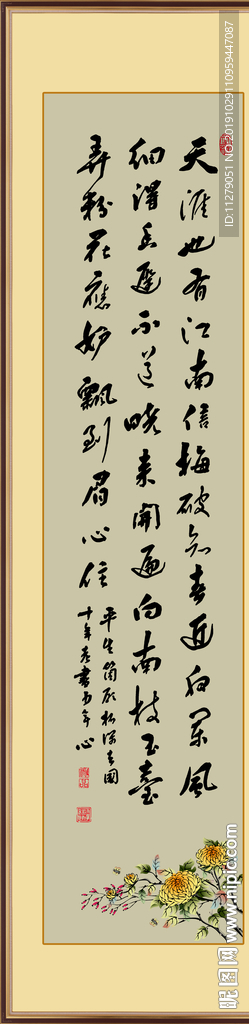 天涯也有江南信梅破知春近夜闌風
細得香遲不道曉來開遍向南枝玉臺
弄粉花應妒飄到眉心住
平生箇願杯深去國
十年老盡少年心
ID:11279051 NO:20191029110959447087
昵图网 www.nipic.com